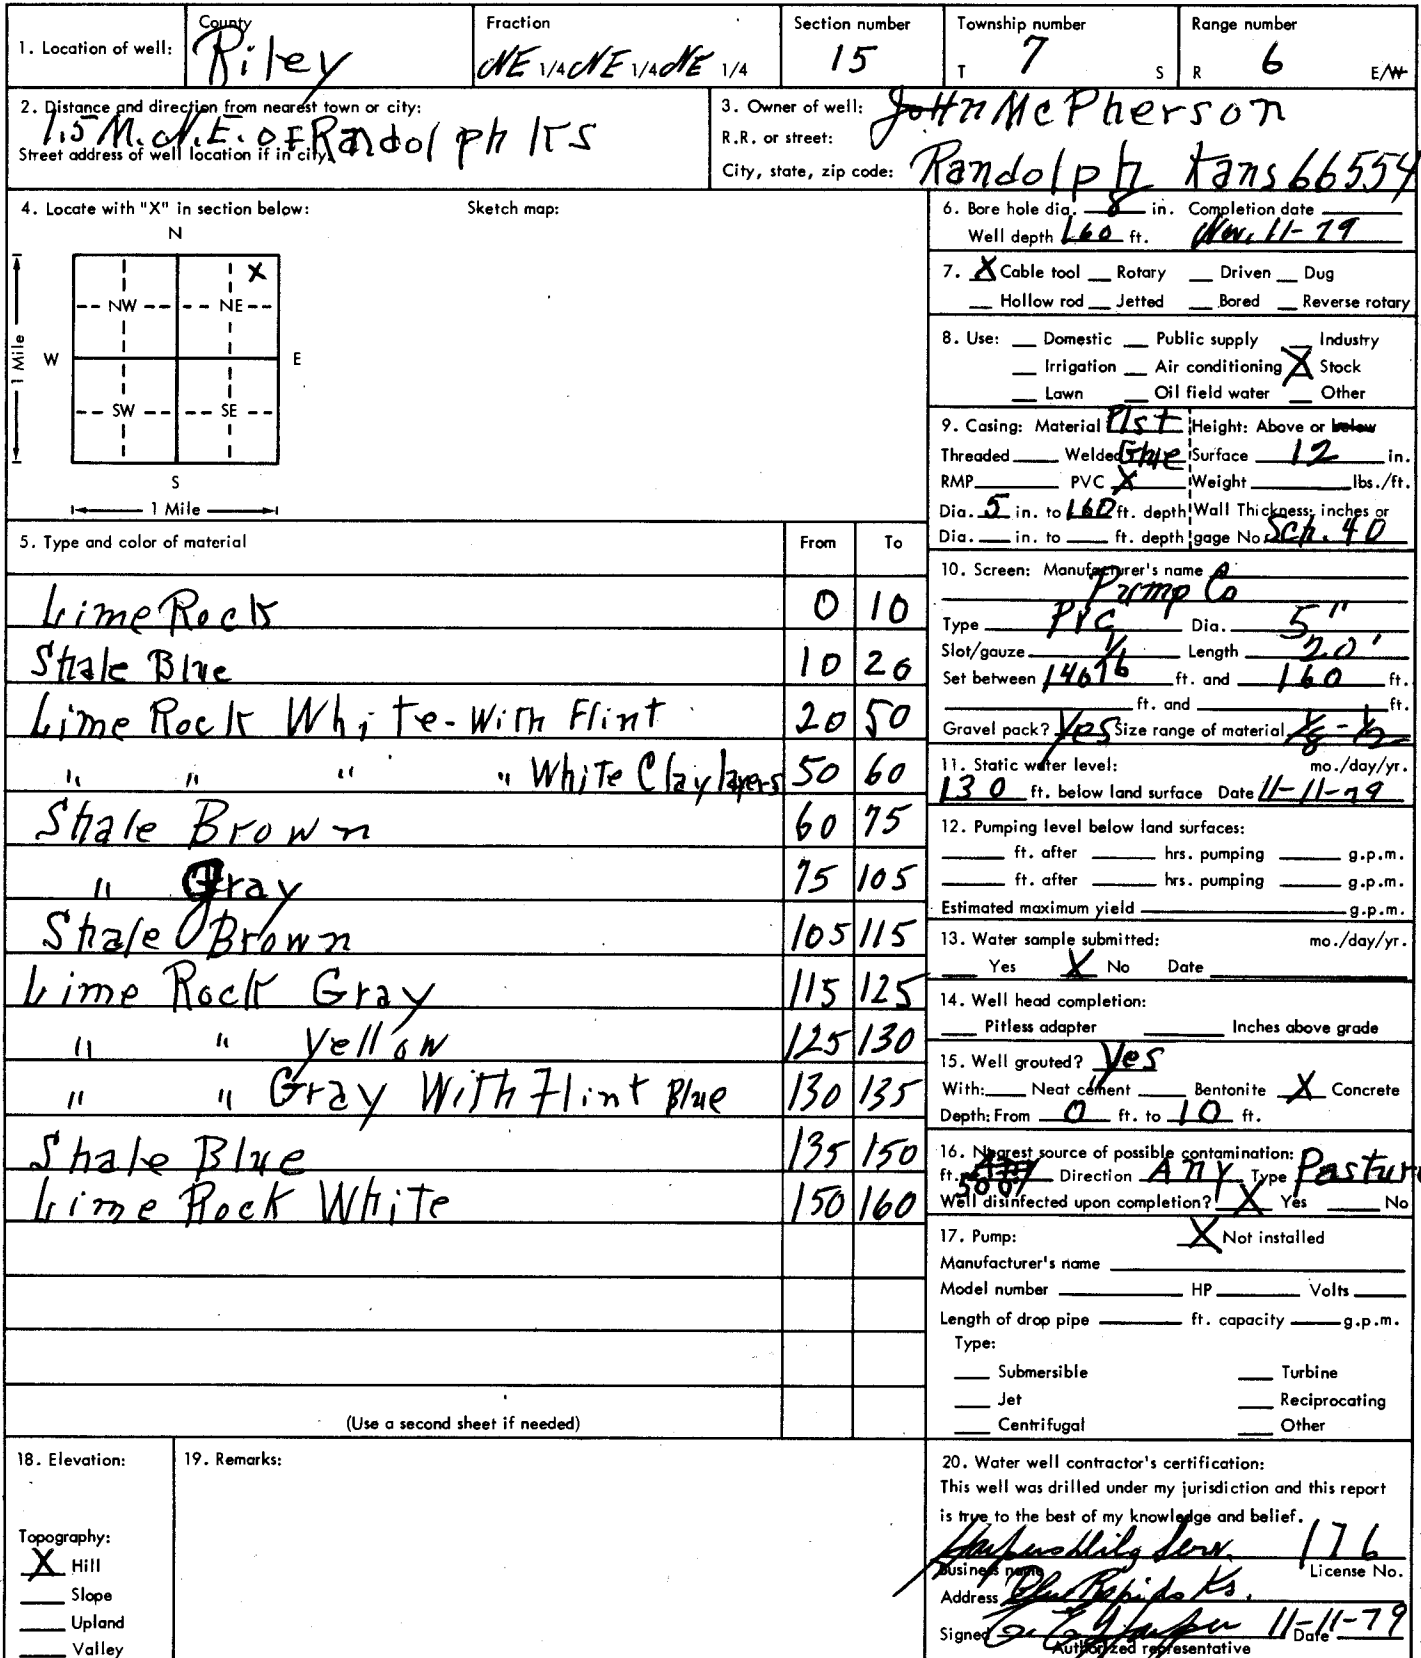 1. Location of well: County Riley Fraction NE 1/4 NE 1/4 NE 1/4 Section number 15 Township number T 7 S Range number R 6 E/W
2. Distance and direction from nearest town or city:
1.5 M. N.E. OF Randolph KS
Street address of well location if in city:
3. Owner of well: John McPherson
R.R. or street:
City, state, zip code: Randolph Kans 66554
4. Locate with "X" in section below: Sketch map:
N
X
NW NE
W E
1 Mile
SW SE
S
1 Mile
6. Bore hole dia. 8 in. Completion date
Well depth 160 ft. Nov. 11-79
7. X Cable tool Rotary Driven Dug
Hollow rod Jetted Bored Reverse rotary
8. Use: Domestic Public supply Industry
Irrigation Air conditioning X Stock
Lawn Oil field water Other
9. Casing: Material Plst Height: Above or below
Threaded Welded Glue Surface 12 in.
RMP PVC X Weight lbs./ft.
Dia. 5 in. to 160 ft. depth Wall Thickness: inches or
Dia. in. to ft. depth gage No. Sch. 40
5. Type and color of material From To
Lime Rock 0 10
Shale Blue 10 20
Lime Rock White - With Flint 20 50
" " " " White Clay layers 50 60
Shale Brown 60 75
" Gray 75 105
Shale Brown 105 115
Lime Rock Gray 115 125
" " Yellow 125 130
" " Gray With Flint Blue 130 135
Shale Blue 135 150
Lime Rock White 150 160
(Use a second sheet if needed)
10. Screen: Manufacturer's name
Pump Co
Type PVC Dia. 5"
Slot/gauze Length 20'
Set between 140 ft. and 160 ft.
ft. and ft.
Gravel pack? Yes Size range of material 1/8 - 1/2
11. Static water level: mo./day/yr.
130 ft. below land surface Date 11-11-79
12. Pumping level below land surfaces:
ft. after hrs. pumping g.p.m.
ft. after hrs. pumping g.p.m.
Estimated maximum yield g.p.m.
13. Water sample submitted: mo./day/yr.
Yes X No Date
14. Well head completion:
Pitless adapter Inches above grade
15. Well grouted? Yes
With: Neat cement Bentonite X Concrete
Depth: From 0 ft. to 10 ft.
16. Nearest source of possible contamination:
ft. 500' Direction Any Type Pasture
Well disinfected upon completion? X Yes No
17. Pump: X Not installed
Manufacturer's name
Model number HP Volts
Length of drop pipe ft. capacity g.p.m.
Type:
Submersible Turbine
Jet Reciprocating
Centrifugal Other
18. Elevation:
Topography:
X Hill
Slope
Upland
Valley
19. Remarks:
20. Water well contractor's certification:
This well was drilled under my jurisdiction and this report
is true to the best of my knowledge and belief.
Harpers Drlg Serv. 176
Business name License No.
Address Blue Rapids Ks.
Signed Harper 11-11-79
Authorized representative Date